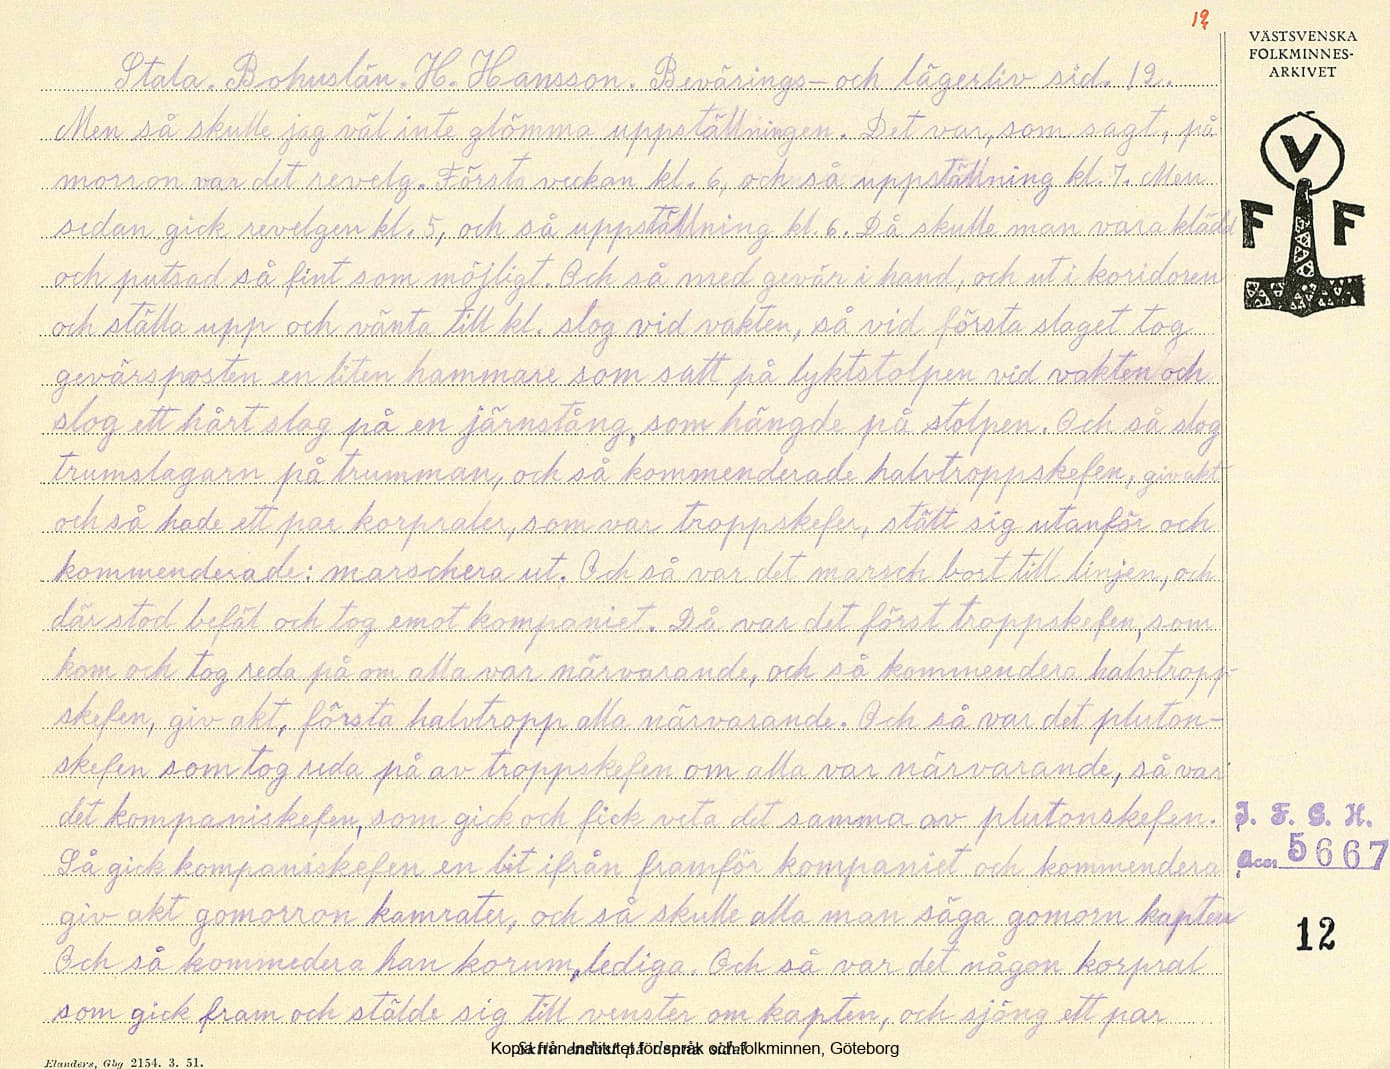 12
VÄSTSVENSKA
FOLKMINNES-
ARKIVET
V
F F
Stala. Bohuslän. H. Hansson. Bevärings- och lägerliv sid. 12.
Men så skulle jag väl inte glömma uppställningen. Det var, som sagt, på
morron var det revelg. Första veckan kl. 6, och så uppställning kl. 7. Men
sedan gick revelgen kl. 5, och så uppställning kl. 6. Då skulle man vara klädd
och putsad så fint som möjligt. Och så med gevär i hand, och ut i koridoren
och ställa upp och vänta till kl. slog vid vakten, så vid första slaget tog
gevärsposten en liten hammare som satt på lyktstolpen vid vakten och
slog ett hårt slag på en järnstång, som hängde på stolpen. Och så slog
trumslagarn på trumman, och så kommenderade halvtroppskefen, giv akt
och så hade ett par korpraler, som var troppskefer, stält sig utanför och
kommenderade: marschera ut. Och så var det marsch bort till linjen, och
där stod befäl och tog emot kompaniet. Då var det först troppskefen, som
kom och tog reda på om alla var närvarande, och så kommendera halvtropp-
skefen, giv akt, första halvtropp alla närvarande. Och så var det pluton-
skefen som tog reda på av troppskefen om alla var närvarande, så var
det kompaniskefen, som gick och fick veta det samma av plutonskefen.
Så gick kompaniskefen en bit ifrån framför kompaniet och kommendera
giv akt gomorron kamrater, och så skulle alla man säga gomorn kapten
Och så kommedera han korum, lediga. Och så var det någon korpral
som gick fram och stälde sig till venster om kapten, och sjöng ett par
I. F. G. H.
Acc. 5667
12
Kopia från Institutet för språk och folkminnen, Göteborg
Elanders, Gbg 2154. 3. 51.